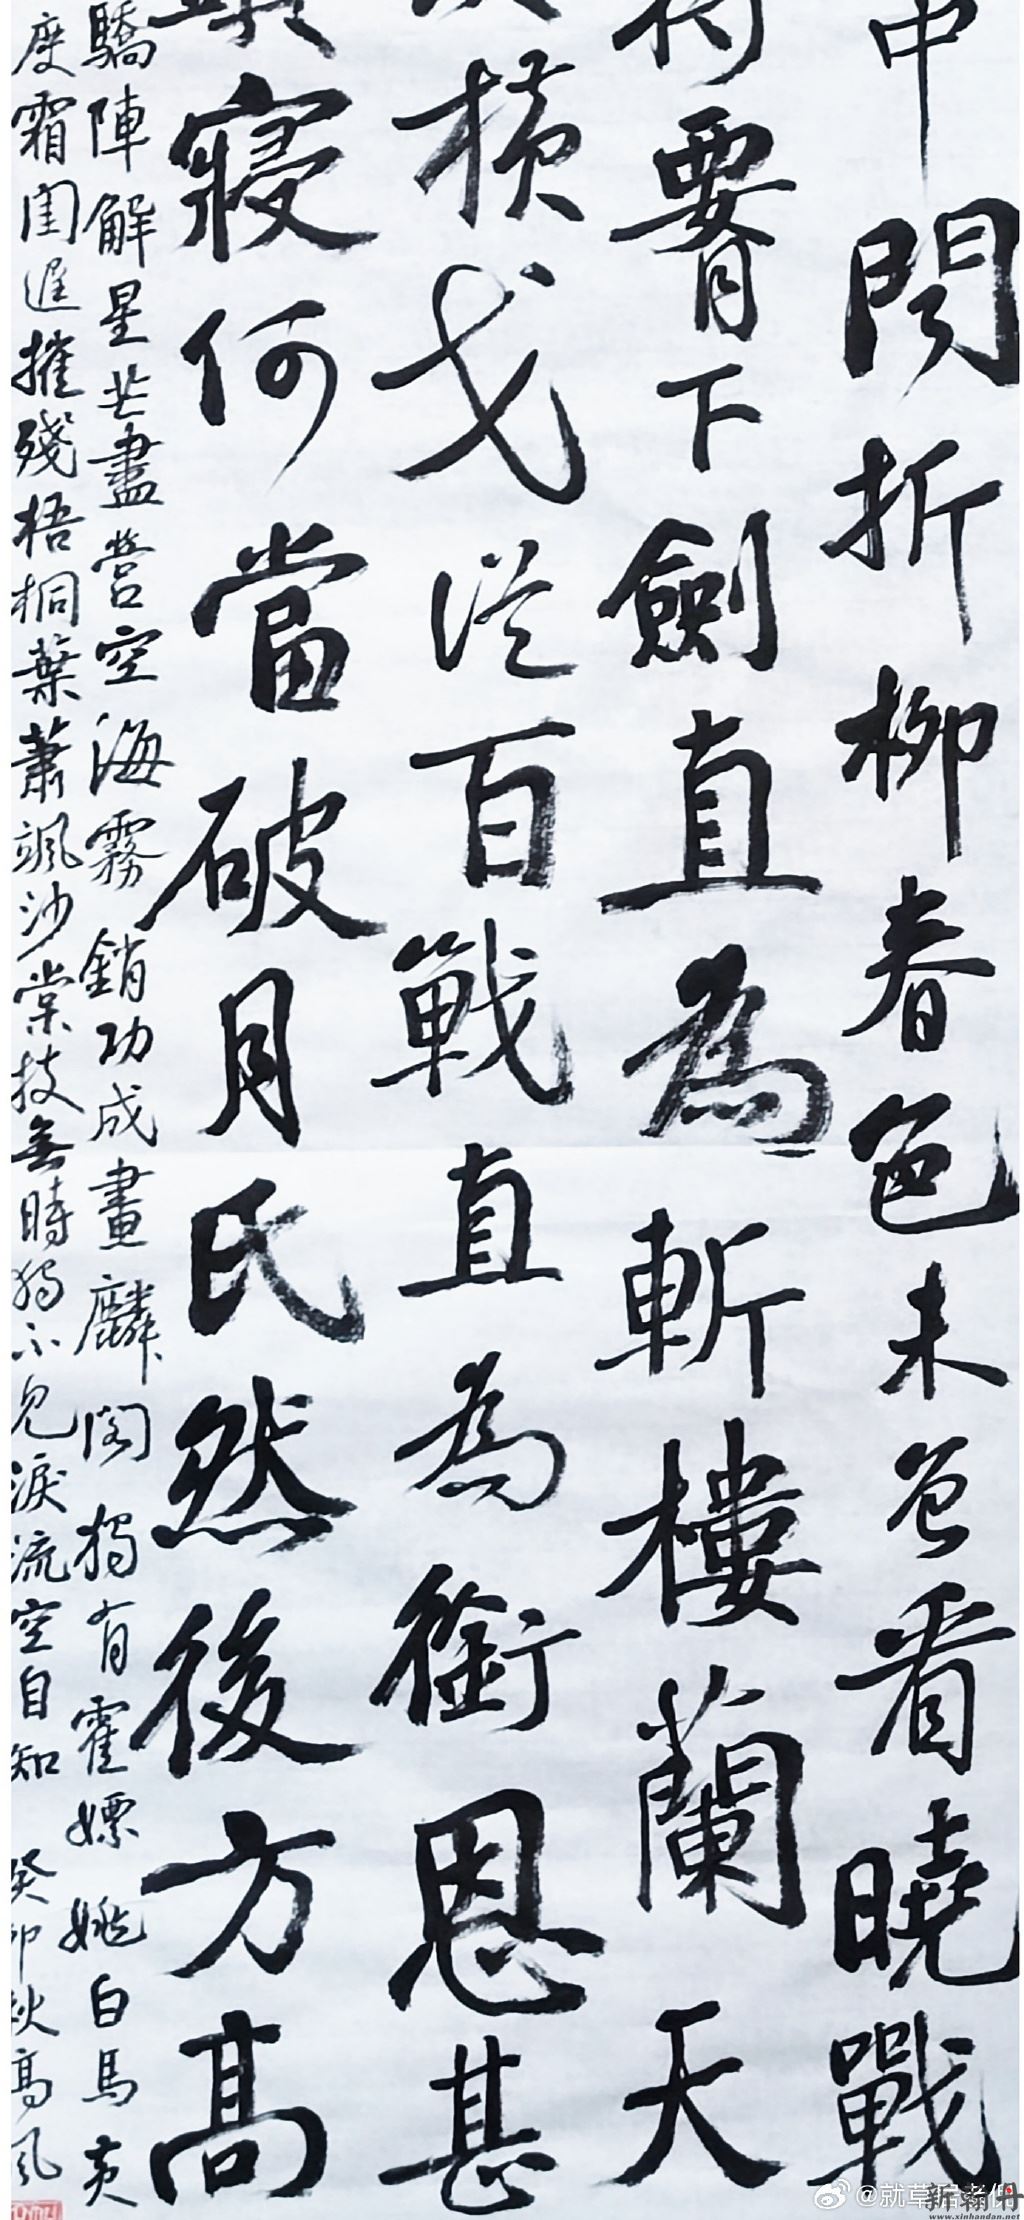 中聞折柳春色未曾看曉戰
將腰下劍直為斬樓蘭天
橫戈從百戰直為銜恩甚
寢何當破月氏然後方高
驕陣解星芒盡營空海霧銷功成畫麟閣獨有霍嫖姚白馬黃
度霜閨遲摧殘梧桐葉蕭颯沙棠枝無時獨不見淚流空自知 癸卯秋高風
@就草
新翰丹
www.xinhandan.net